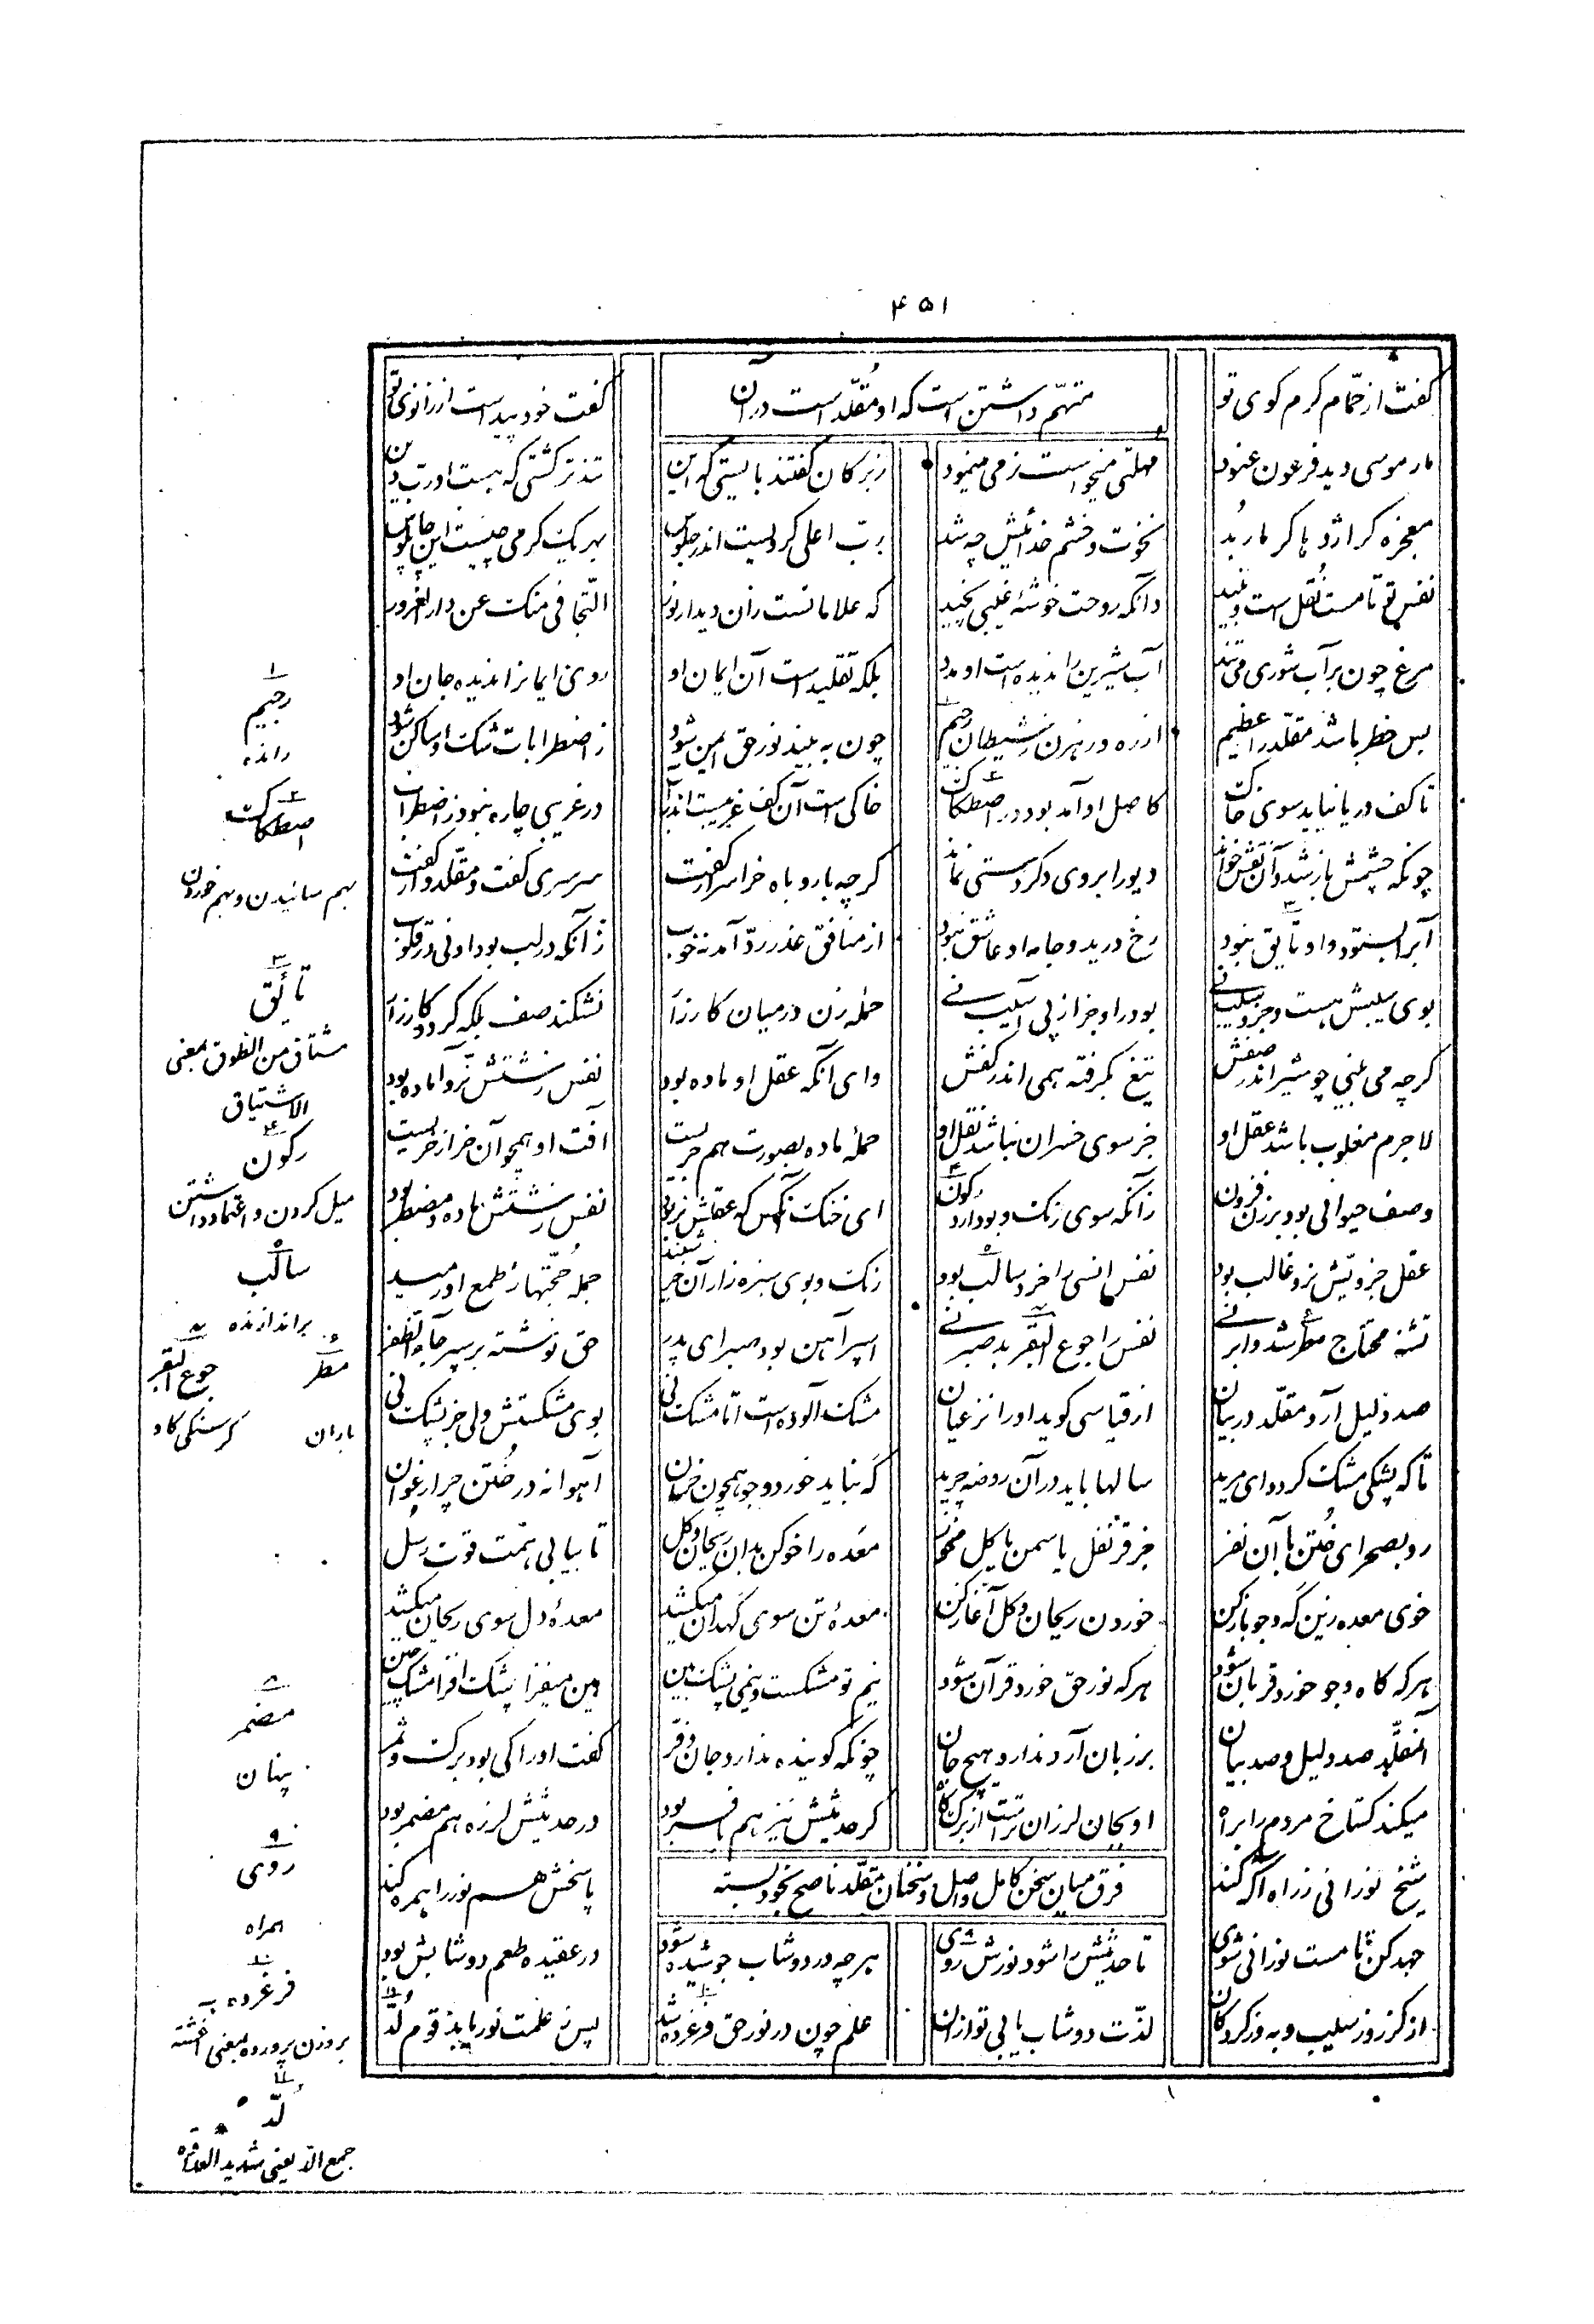 ۴۵۱
گفت از حمّام گرم کوی تو
متهّم داشتن است که او مقلّد است در آن
گفت خود پیداست از زانوی تو
مار موسی دید فرعون عنود
مهلتی میخواست نرمی مینمود
زیرکان گفتند بایستی که این
تندتر گشتی که هست او رب دین
معجزه گر اژدها گر مار بُد
نخوت و خشم خدائیش چه شد
ربّ اعلی گر ویست اندر جلوس
بهر یک کرمی چیست این چاپلوس
نفس تو تا مست نُقل است و نبید
دانکه روحت خوشهٔ غیبی نچید
که علاماتست زان دیدار نور
التّجافی منک عن دار الغرور
مرغ چون بر آب شوری می‌تند
آب شیرین را ندیده است او مدد
بلکه تقلید است آن ایمان او
روی ایمان را ندیده جان او
بس خطر باشد مقلّد را عظیم
از ره و رهزن ز شیطان رجیم
چون به بیند نور حق ایمن شود
ز اضطرابات شک او ساکن شود
تا کف دریا نیاید سوی خاک
کاصل او آمد بود در اصطکاک
خاکی است آن کف غریبست اندر آب
در غریبی چاره نبود ز اضطراب
چونکه چشمش باز شد و آن نقش خواند
دیو را بر وی دگر دستی نماند
گرچه با روباه خر اسرار گفت
سرسری گفت و مقلّدوار گفت
آب را بستود و او تایق نبود
رخ درید و جامه او عاشق نبود
از منافق عذر ردّ آمد نه خوب
زانکه در لب بود او نی در قلوب
بوی سیبش هست و جزو سیب نی
بو در او جز از پی آسیب نی
حمله زن در میان کارزار
نشکند صف بلکه گردد کارزار
گرچه می بینی چو شیر اندر صفش
تیغ بگرفته همی اندر کفش
وای آنکه عقل او ماده بود
نفس زشتش نرّ و آماده بود
لاجرم مغلوب باشد عقل او
جز سوی خسران نباشد نقل او
حملهٔ ماده بصورت هم جریست
آفت او همچو آن خر از خریست
وصف حیوانی بود بر زن فزون
زانکه سوی رنگ و بو دارد رکون
ای خنک آنکس که عقلش نر بود
نفس زشتش ماده و مضطر بود
عقل جزویش نر و غالب بود
نفس انسی را خرد سالب بود
رنگ و بوی سبزه زار آن خر شنید
جمله حجّتها ز طمع او رمید
تشنه محتاج مطر شد و ابر نی
نفس را جوع البقر بد صبر نی
اسپر آهن بود صبر ای پدر
حق نوشته بر سپر جاء الظفر
صد دلیل آرد مقلّد در بیان
از قیاسی گوید او را نز عیان
مشک آلوده است امّا مشک نی
بوی مشکستش ولی جز پشک نی
تا که پشکی مشک گردد ای مرید
سالها باید در آن روضه چرید
که نباید خورد و جو همچون خران
آهوانه در ختن چر ارغوان
جز قرنفل یا سمن یا گل مچر
رو بصحرای خُتن با آن نفر
معده را خو کن بدان ریحان و گل
تا بیابی حکمت قوت رسل
خوی معده زین که و جو باز کن
خوردن ریحان و گل آغاز کن
معدهٔ تن سوی کهدان میکشد
معدهٔ دل سوی ریحان میکشد
هر که کاه و جو خورد قربان شود
هر که نور حق خورد قرآن شود
نیم تو مشکست و نیمی پشک هین
هین میفزا پشک افزا مشک چین
آن مقلّد صد دلیل و صد بیان
بر زبان آرد ندارد هیچ جان
چونکه گوینده ندارد جان و فرّ
گفت او را کی بود برگ و ثمر
میکند گستاخ مردم را براه
او بجان لرزان تر است از برگ کاه
گر حدیثش نیز هم بافر بود
در حدیثش لرزه هم مضمر بود
فرق میان سخن کامل و اصل و سخنان مقلّد ناصح بخود بسته
شیخ نورانی ز راه آگه کند
با سخن هم نور را همره کند
جهد کن تا مست نورانی شوی
تا حدیثش را شود نورش روی
هرچه در دوشاب جوشیده شود
در عقیده طعم دوشابش بود
لذّت دوشاب یابی تو از آن
علم چون در نور حق فرغرده شد
پس ز علمت نور یابد قوم لُدّ
۱ رجیم
رانده
۲ اصطکاک
بهم سانیدن و بهم خوردن
۳ تائق
مشتاق من الطوق بمعنی
الاشتیاق
۴ رکون
میل کردن و اعتماد داشتن
۵ سالب
براندازنده
۶ مطر
باران
۷ جوع البقر
گرسنگی گاو
۸ مضمر
پنهان
۹ روی
همراه
۱۰ فرغرده
بر وزن پرورده بمعنی آغشته
۱۱ لُدّ
جمع الدّ یعنی شدید العداوه